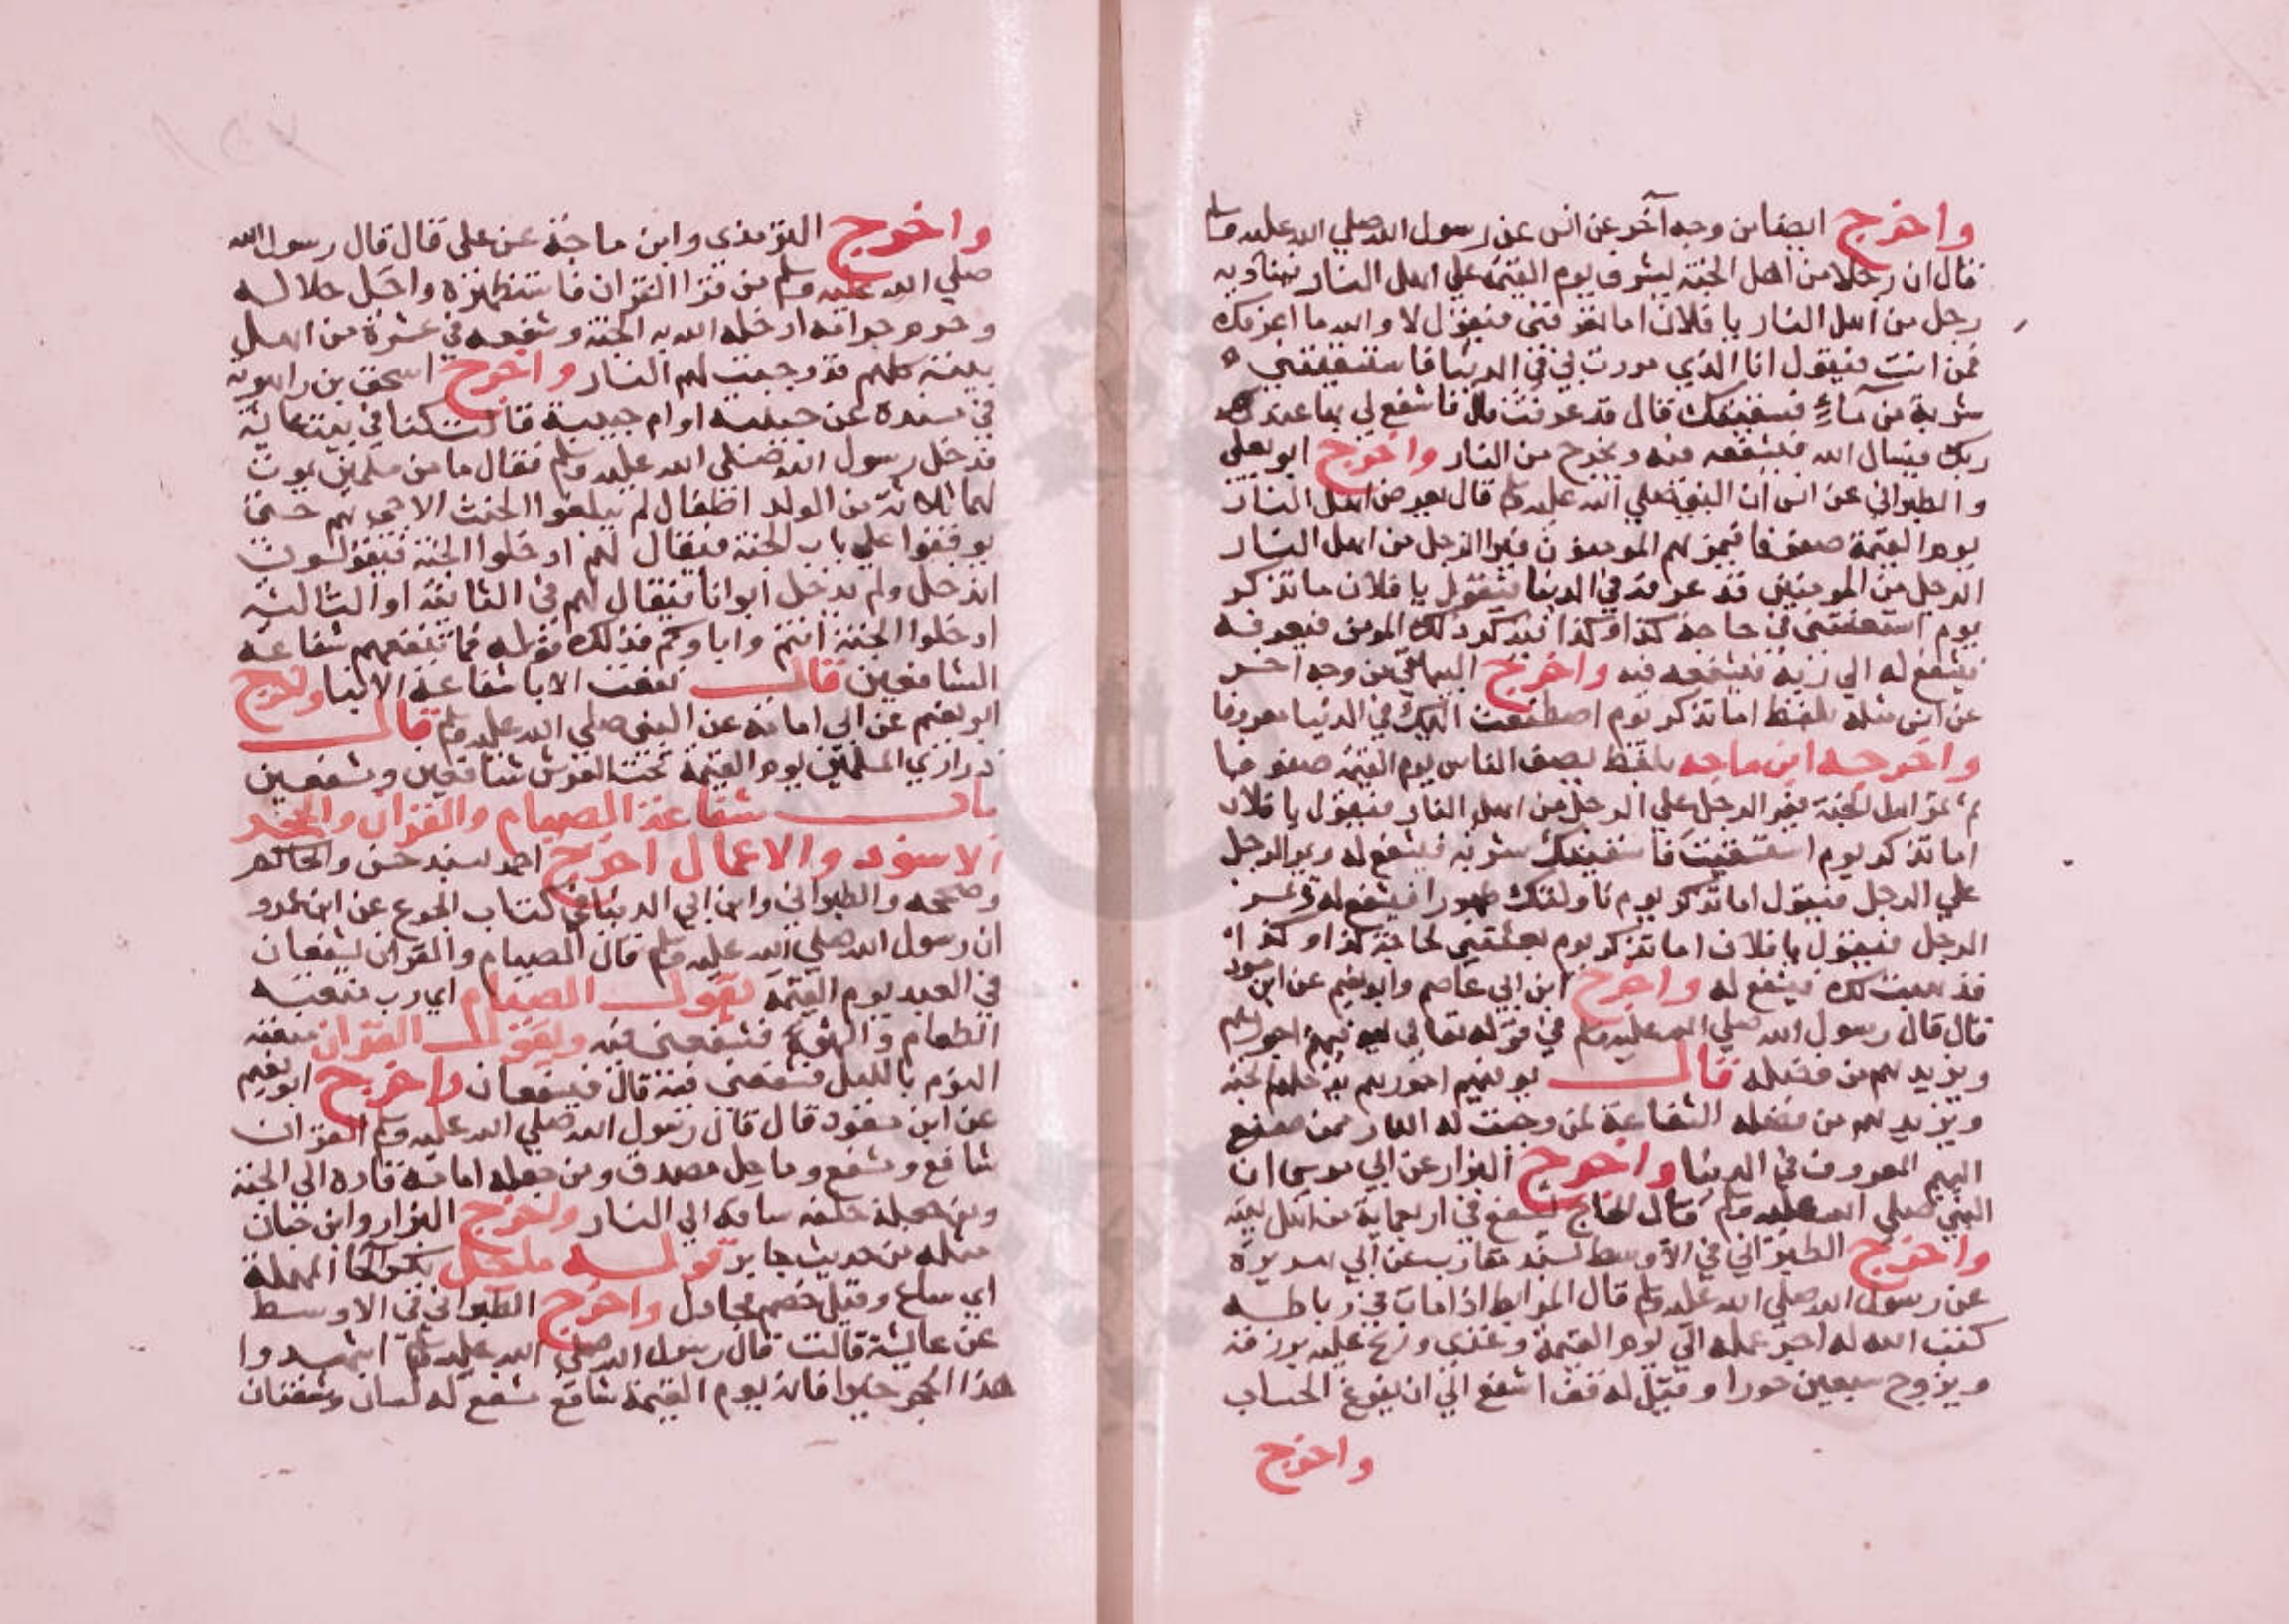 واخرج ايضا من وجه آخر عن انس عن رسول الله صلي الله عليه وسلم
قال ان رجلا من اهل الجنة يشرف يوم القيمة علي اهل النار فيناديه
رجل من اهل النار يا فلان اما تعرفني فيقول لا والله ما اعرفك
فمن انت فيقول انا الذي مررت بي في الدنيا فاستسقيتني
شربة من مآء فسقيتك قال قد عرفت قال فاشفع لي بها عند
ربك فيسال الله فيشفعه فيه ويخرج من النار واخرج ابو يعلي
والطبراني عن انس ان النبي صلي الله عليه وسلم قال يعرض اهل النار
يوم القيمة صفوفا فيمر بهم المومنون فيرا الرجل من اهل النار
الرجل من المومنين قد عرفه في الدنيا فيقول يا فلان ما تذكر
يوم استعنتني في حاجة كذا وكذا فيذكر ذلك المومن فيعرفه
فيشفع له الي ربه فيشفعه فيه واخرج البيهقي من وجه اخر
عن انس مثله بلفظ اما تذكر يوم اصطنعت اليك في الدنيا معروفا
واخرجه ابن ماجه بلفظ يصف الناس يوم القيمة صفوفا
ثم تمر اهل الجنة فيمر الرجل علي الرجل من اهل النار فيقول يا فلان
اما تذكر يوم استسقيت فاسقيتك شربة فيشفع له ويمر الرجل
علي الرجل فيقول اما تذكر يوم ناولتك طهورا فيشفع له ويمر
الرجل فيقول يا فلان اما تذكر يوم بعثتني لحاجة كذا وكذا
فذهبت لك فيشفع له واخرج ابن ابي عاصم وابو نعيم عن ابن مسعود
قال قال رسول الله صلي الله عليه وسلم في قوله تعالي ليوفيهم اجورهم
ويزيدهم من فضله قال يوفيهم اجورهم يدخلهم الجنة
ويزيدهم من فضله الشفاعة لمن وجبت له النار ممن صنع
اليهم المعروف في الدنيا واخرج البزار عن ابي موسي ان
النبي صلي الله عليه وسلم قال الحاج يشفع في اربعماية من اهل بيته
واخرج الطبراني في الاوسط بسند مقارب عن ابي هريرة
عن رسول الله صلي الله عليه وسلم قال المرابط اذا مات في رباطه
كتب الله له اجر عمله الي يوم القيمة وغذي وريح عليه برزقه
ويزوج سبعين حورا وقيل له قف اشفع الي ان يفرغ الحساب
واخرج
واخرج الترمذي وابن ماجة عن علي قال قال رسول الله
صلي الله عليه وسلم من قرا القران فاستظهره واحل حلاله
وحرم حرامه ادخله الله به الجنة وشفعه في عشرة من اهل
بيته كلهم قد وجبت لهم النار واخرج اسحق بن راهويه
في مسنده عن حبيبة او ام حبيبة قالت كنا في بيت عايشة
فدخل رسول الله صلي الله عليه وسلم فقال ما من مسلمين يموت
لهما ثلاثة من الولد اطفال لم يبلغوا الحنث الا جي بهم حتي
يوقفوا علي باب الجنة فيقال لهم ادخلوا الجنة فيقولون
اندخل ولم يدخل ابوانا فيقال لهم في الثانية او الثالثة
ادخلوا الجنة انتم واباوكم فذلك قوله فما تنفعهم شفاعة
الشافعين قال نفعت الابا شفاعة الابنا واخرج
ابو نعيم عن ابي امامة عن النبي صلي الله عليه وسلم قال
ذراري المسلمين يوم القيمة تحت العرش شافعين ومشفعين
باب شفاعة الصيام والقران والحجر
الاسود والاعمال اخرج احمد بسند حسن والحاكم
وصححه والطبراني وابن ابي الدنيا في كتاب الجوع عن ابن عمرو
ان رسول الله صلي الله عليه وسلم قال الصيام والقران يشفعان
في العبد يوم القيمة يقول الصيام اي رب منعته
الطعام والشهوة فشفعني فيه ويقول القران منعته
النوم بالليل فشفعني فيه قال فيشفعان واخرج ابو نعيم
عن ابن مسعود قال قال رسول الله صلي الله عليه وسلم القران
شافع ومشفع وماحل مصدق ومن جعله امامه قاده الي الجنة
ومن جعله خلفه ساقه الي النار واخرج البزار وابن حبان
مثله من حديث جابر قوله ماحل بكسر الحا المهملة
اي ساع وقيل خصم مجادل واخرج الطبراني في الاوسط
عن عايشة قالت قال رسول الله صلي الله عليه وسلم اشهدوا
هذا الحجر خيرا فانه يوم القيمة شافع مشفع له لسان وشفتان